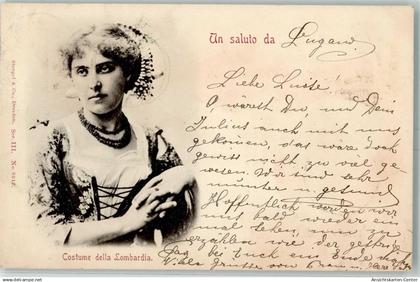 Un saluto da Lugano
Liebe Luise!
O wärest Du und Dein
Julius auch mit uns
gekommen, das wäre doch
gewiss nicht zu viel ge-
wesen. Wir sind sehr
munter u. gesund
Hoffentlich werden wir
uns bald wieder ein
mal sehen, um zu
erzählen wie der
bei Euch ein Ende
Viele Grüsse von
Costume della Lombardia.
Stengel & Co., Dresden. Ser. III. N.